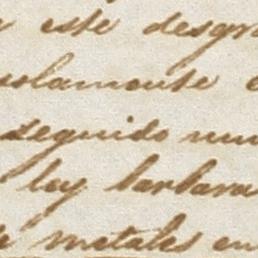 este desgra
solamente
seguido un
ley barbara
de metales en